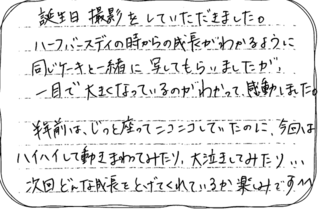 誕生日 撮影をしていただきました。
ハーフバースディの時からの成長がわかるように
同じケーキと一緒に写してもらいましたが、
一目で大きくなっているのがわかって感動しました。
半年前は、じっと座ってニコニコしていたのに、今回は
ハイハイして動きまわってみたり、大泣きしてみたり…
次回どんな成長をとげてくれているか楽しみです^^